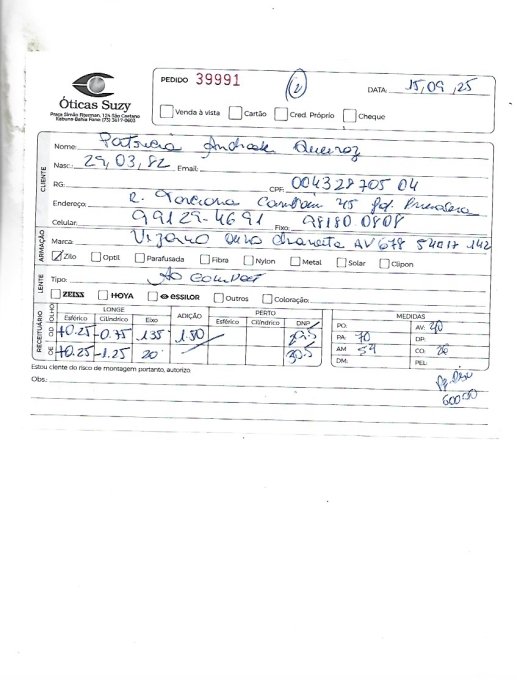 PEDIDO 39991
2
DATA: 15,09,25
Óticas Suzy
Praça Simão Fiterman, 124 São Caetano
Itabuna-Bahia Fone: (73) 3617-0603
Venda à vista Cartão Cred. Próprio Cheque
CLIENTE
Nome: Patricia Andrade Queiroz
Nasc.: 29,03,82 Email:
RG: CPF: 004328705 04
Endereço: R. 45
Celular: 99129-4691 Fixo: 98180 0808
ARMAÇÃO
Marca: Vizano AV678 54017 142
Zilo Optil Parafusada Fibra Nylon Metal Solar Clipon
LENTE
Tipo: AO COMPACT
ZEISS HOYA essilor Outros Coloração:
RECEITUÁRIO
OLHO LONGE ADIÇÃO PERTO MEDIDAS
Esférico Cilíndrico Eixo Esférico Cilíndrico DNP
OD +0.25 -0.75 135 1.50
OE +0.25 -1.25 20 30.5
PO: AV: 40
PA: 70 DP:
AM 54 CO:
DM: PEL:
Estou ciente do risco de montagem portanto, autorizo.
Obs.: